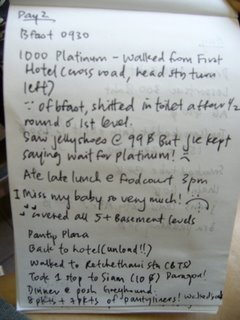 Day 2
Bfast 0930
1000 Platinum - Walked from First
Hotel (cross road, head str8 turn
left)
∵ of bfast, shitted in toilet after 1/2
round @ 1st level.
Saw jelly shoes @ 99B But Jc kept
saying wait for Platinum! ☹
Ate late lunch @ foodcourt 3pm
I miss my baby so very much! ☹
Covered all 5 + Basement levels
Panty Plaza
Back to hotel (unload!!)
Walked to Ratchethewi stn (BTS)
Took 1 stop to Siam (10 B) Paragon!
Dinner @ posh Greyhound.
8 pkts + 7 pkts of pantyliners! walked